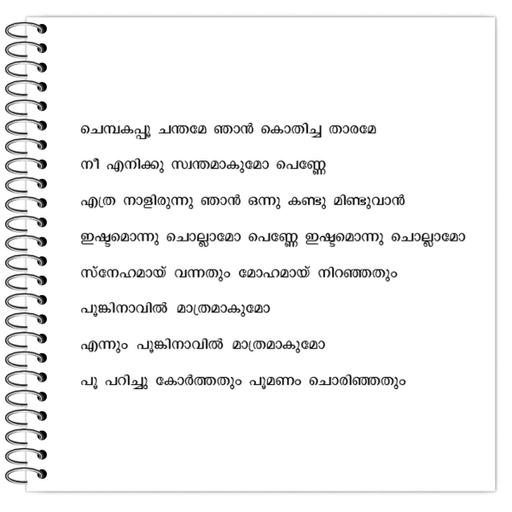 ചെമ്പകപ്പൂ ചന്തമേ ഞാൻ കൊതിച്ച താരമേ
നീ എനിക്കു സ്വന്തമാകുമോ പെണ്ണേ
എത്ര നാളിരുന്നു ഞാൻ ഒന്നു കണ്ടു മിണ്ടുവാൻ
ഇഷ്ടമൊന്നു ചൊല്ലാമോ പെണ്ണേ ഇഷ്ടമൊന്നു ചൊല്ലാമോ
സ്നേഹമായ് വന്നതും മോഹമായ് നിറഞ്ഞതും
പൂങ്കിനാവിൽ മാത്രമാകുമോ
എന്നും പൂങ്കിനാവിൽ മാത്രമാകുമോ
പൂ പറിച്ചു കോർത്തതും പൂമണം ചൊരിഞ്ഞതും